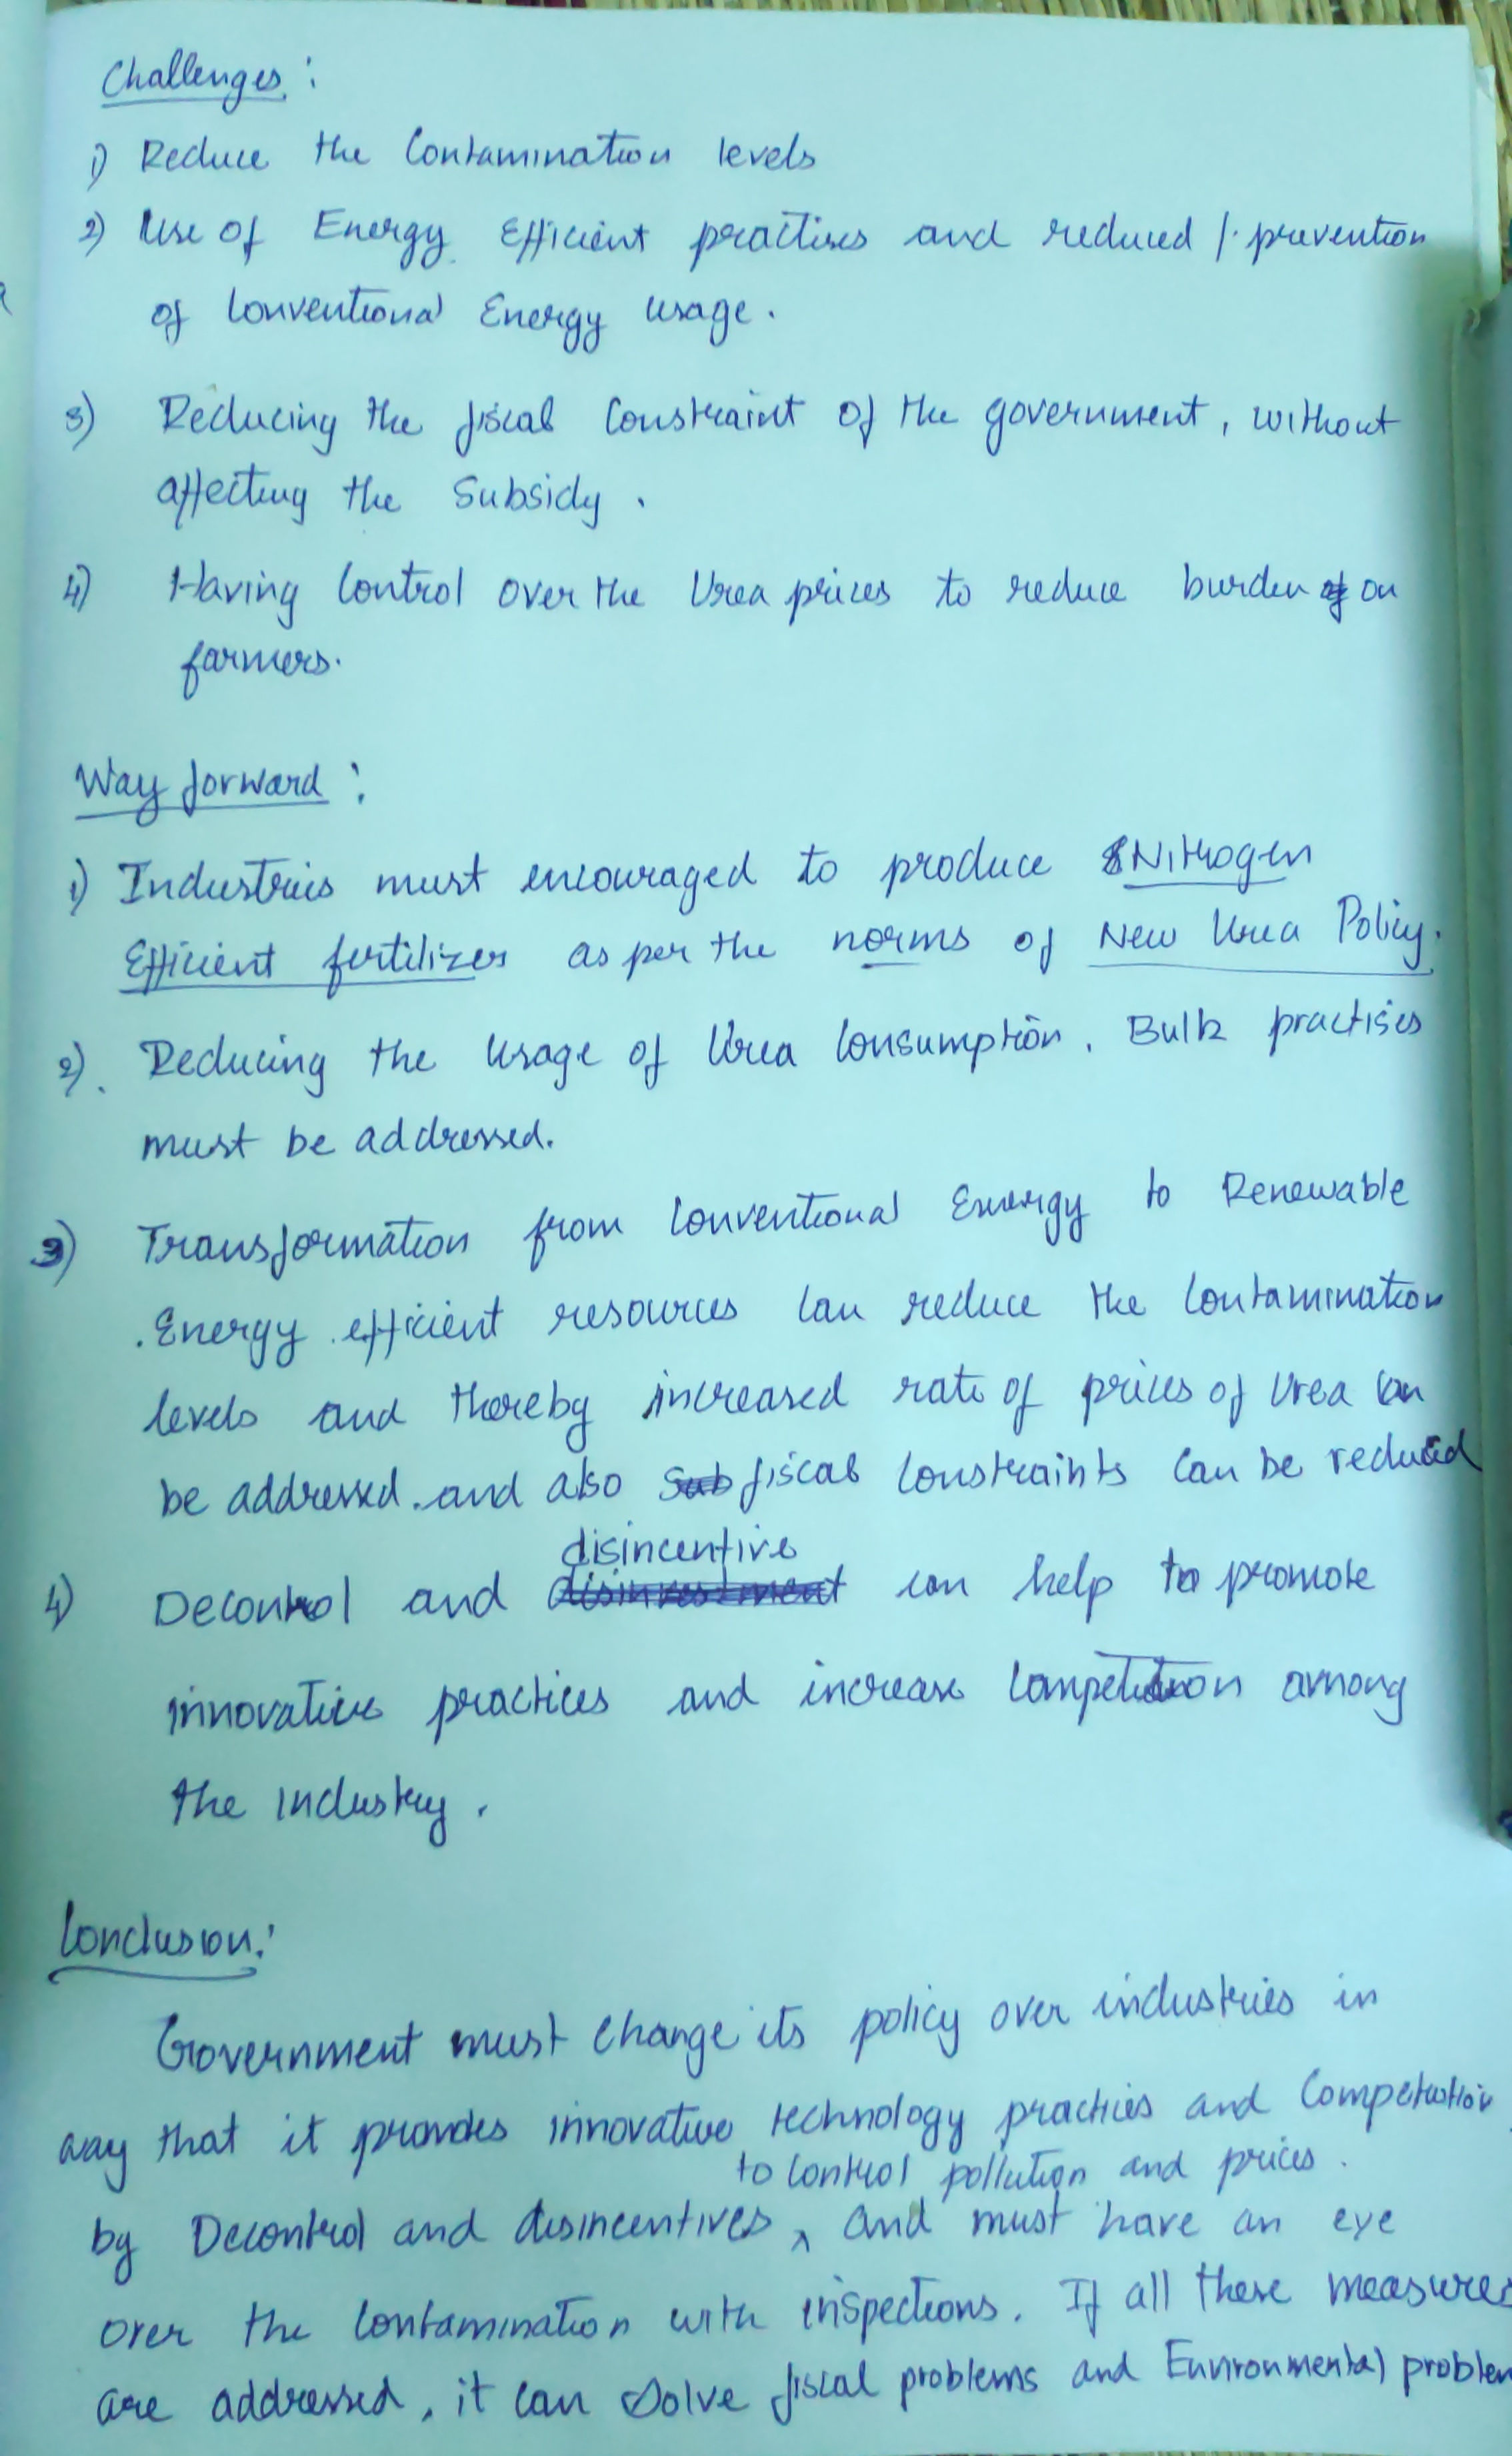 Challenges :
1) Reduce the Contamination levels
2) Use of Energy Efficient practises and reduced / prevention
of Conventional Energy usage.
3) Reducing the fiscal Constraint of the government, without
affecting the Subsidy .
4) Having Control over the Urea prices to reduce burden on
farmers.
Way forward :
1) Industries must encouraged to produce Nitrogen
Efficient fertilizer as per the norms of New Urea Policy.
2). Reducing the Usage of Urea Consumption. Bulk practises
must be addressed.
3) Transformation from Conventional Energy to Renewable
Energy efficient resources can reduce the Contamination
levels and thereby increased rate of prices of Urea can
be addressed. and also fiscal Constraints can be reduced
disincentive
4) Decontrol and can help to promote
innovative practices and increase Competition among
the industry .
Conclusion:
Government must Change its policy over industries in
way that it provides innovative technology practices and
to Control pollution and prices .
by Decontrol and disincentives, and must have an eye
over the Contamination with inspections. If all these measures
are addressed, it can Solve fiscal problems and Environmental problem